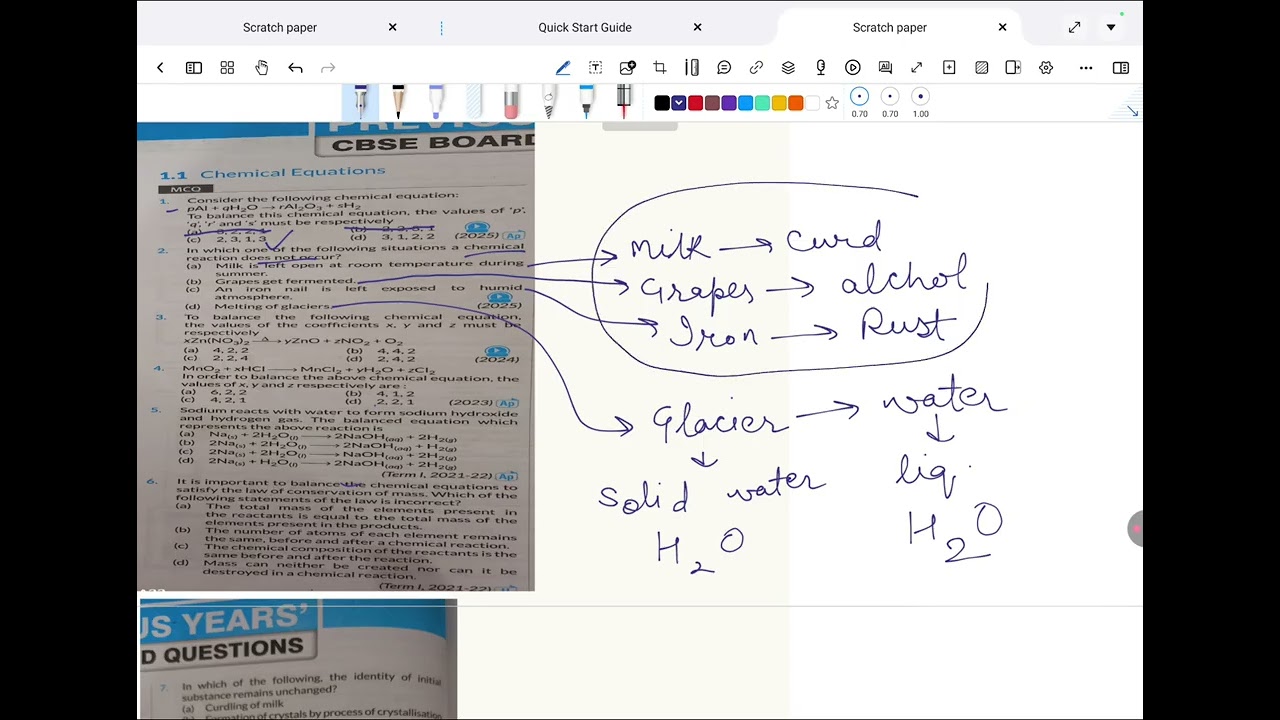 Scratch paper
Quick Start Guide
Scratch paper
0.70 0.70 1.00
CBSE BOARD
1.1 Chemical Equations
MCQ
1. Consider the following chemical equation:
pAl + qH₂O → rAl₂O₃ + sH₂
To balance this chemical equation, the values of 'p',
'q', 'r' and 's' must be respectively
(c) 2, 3, 1, 3 (d) 3, 1, 2, 2 (2025) Ap
2. In which one of the following situations a chemical
reaction does not occur?
(a) Milk is left open at room temperature during
summer.
(b) Grapes get fermented.
(c) An iron nail is left exposed to humid
atmosphere.
(d) Melting of glaciers. (2025)
3. To balance the following chemical equation,
the values of the coefficients x, y and z must be
respectively
xZn(NO₃)₂ → yZnO + zNO₂ + O₂
(a) 4, 2, 2 (b) 4, 4, 2
(c) 2, 2, 4 (d) 2, 4, 2 (2024)
4. MnO₂ + xHCl → MnCl₂ + yH₂O + zCl₂
In order to balance the above chemical equation, the
values of x, y and z respectively are :
(a) 6, 2, 2 (b) 4, 1, 2
(c) 4, 2, 1 (d) 2, 2, 1 (2023) Ap
5. Sodium reacts with water to form sodium hydroxide
and hydrogen gas. The balanced equation which
represents the above reaction is
(a) Na(s) + 2H₂O(l) → 2NaOH(aq) + 2H₂(g)
(b) 2Na(s) + 2H₂O(l) → 2NaOH(aq) + H₂(g)
(c) 2Na(s) + 2H₂O(l) → NaOH(aq) + 2H₂(g)
(d) 2Na(s) + H₂O(l) → 2NaOH(aq) + 2H₂(g)
(Term I, 2021-22) Ap
6. It is important to balance the chemical equations to
satisfy the law of conservation of mass. Which of the
following statements of the law is incorrect?
(a) The total mass of the elements present in
the reactants is equal to the total mass of the
elements present in the products.
(b) The number of atoms of each element remains
the same, before and after a chemical reaction.
(c) The chemical composition of the reactants is the
same before and after the reaction.
(d) Mass can neither be created nor can it be
destroyed in a chemical reaction.
(Term I, 2021-22)
US YEARS'
D QUESTIONS
7. In which of the following, the identity of initial
substance remains unchanged?
(a) Curdling of milk
Formation of crystals by process of crystallisation
Milk → Curd
Grapes → alchol
Iron → Rust
Glacier → water
↓ ↓
Solid water liq.
H₂O H₂O